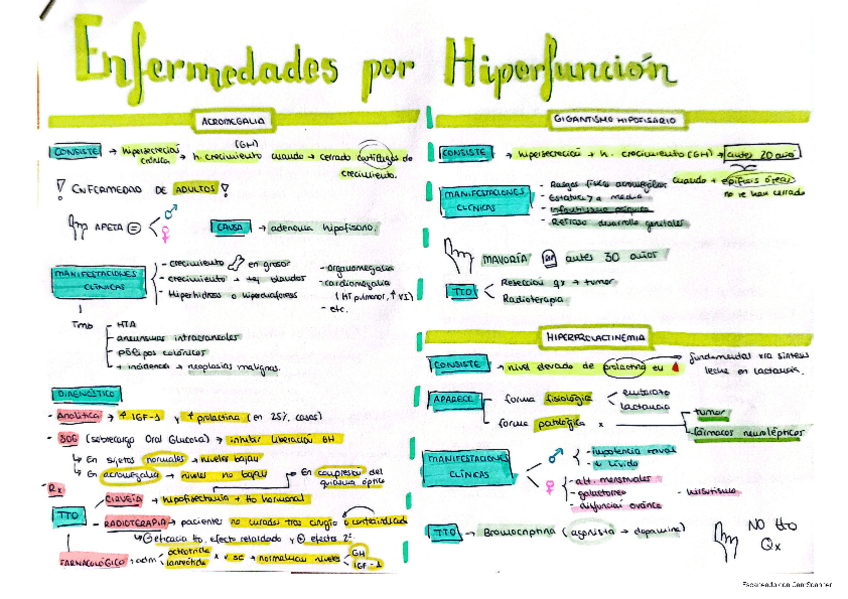 Enfermedades por Hiperfunción
ACROMEGALIA
CONSISTE → hipersecreción crónica (GH) h. crecimiento cuando → cerrado cartílagos de crecimiento.
¡ ENFERMEDAD DE ADULTOS !
AFETA = < ♂ ♀
CAUSA → adenoma hipofisario.
MANIFESTACIONES CLÍNICAS
- crecimiento en grosor
- crecimiento → tej blandos
- Hiperhidrosis o
- organomegalia
- cardiomegalia
(HT pulmonar, ↑ VI)
- etc.
Tmb
- HTA
- aneurismas intracraneales
- pólipos colónicos
- + incidencia → neoplasias malignas.
DIAGNÓSTICO
- Analítica → ↑ IGF-1 y ↑ prolactina (en 25% casos)
- SOG (sobrecarga Oral Glucosa) → inhibir liberación GH
↳ En sujetos normales → niveles bajan
↳ En acromegalia → niveles no bajan
- Rx
→ En compresión del quiasma óptico
TTO
- CIRUGÍA → hipofisectomía + tto hormonal
- RADIOTERAPIA → pacientes no curados tras cirugía o contraindicada
↳ eficacia tto, efecto retardado y efectos 2º
- FARMACOLÓGICO → adm octeotride lanreótida x v SC → normalizan niveles GH IGF-1
GIGANTISMO HIPOFISARIO
CONSISTE → hipersecreción → h. crecimiento (GH) → antes 20 años
cuando → epífisis óseas no se han cerrado
MANIFESTACIONES CLÍNICAS
- Rasgos físicos acromegálicos
- Estatura > a media
- Infantilismo psíquico
- Retraso desarrollo genitales
MAYORÍA antes 30 años
TTO < Resección qx → tumor
Radioterapia
HIPERPROLACTINEMIA
CONSISTE → nivel elevado de prolactina en → fundamental xra síntesis leche en lactancia.
APARECE
forma fisiológica < embarazo lactancia
forma patológica x
→ tumor
→ fármacos neurolépticos
MANIFESTACIONES CLÍNICAS
♂ - impotencia sexual
- ↓ líbido
♀ - alt. menstruales
- galactorrea
- disfunción ovárica
- hirsutismo
TTO → Bromocriptina (agonista → dopamina)
NO tto Qx
Escaneado con CamScanner